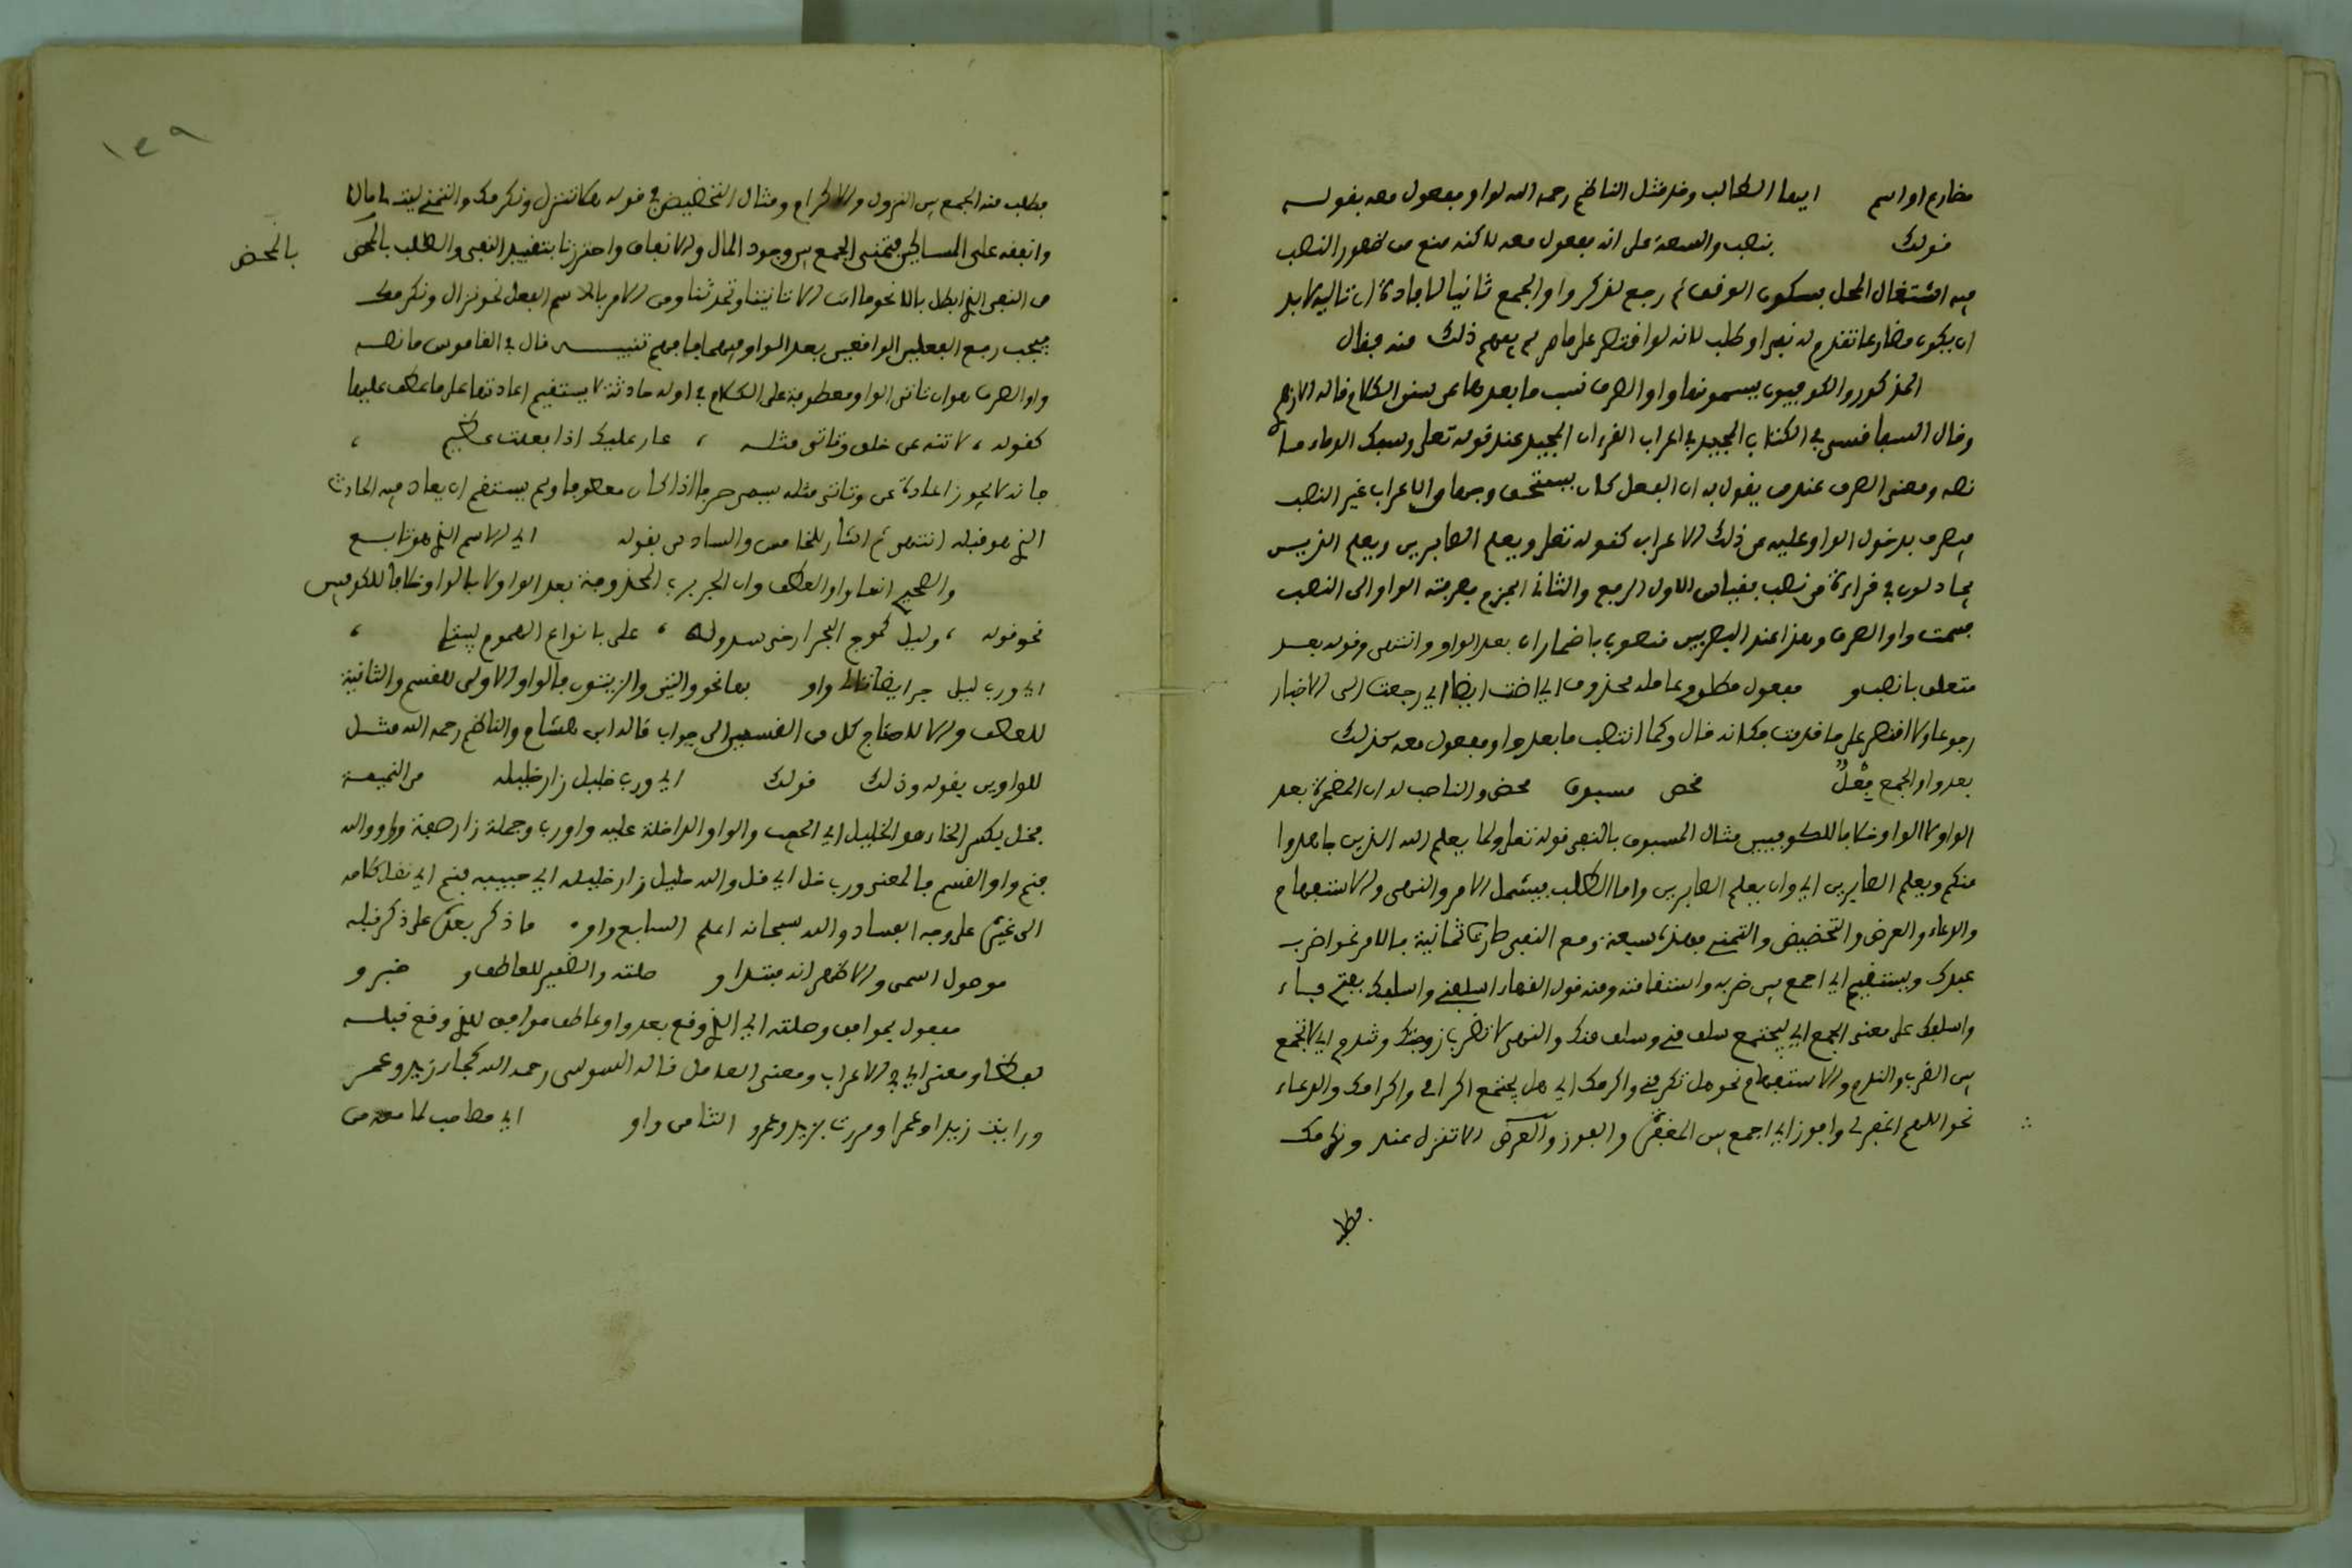 مضارع او اسم ايها الطالب وقد مثل الناظم رحمه الله لواو مفعول معه بقوله
قولك بنصب والسعة على انه مفعول معه لاكنه منع من ظهور النصب
فيه اشتغال المحل بسكون الوقف ثم رجع لذكر واو الجمع ثانيا لافادة ان تاليها لابد
ان يكون مضارعا تقدم له نفي او طلب لانه لو اقتصر على ما مر لم يفهم ذلك منه فقال
المذكور والكوفيون يسمونها واو الصرف نسب ما بعدها عن سنن الكلام قاله الازهري
وقال السفاقسي في الكتاب المجيد في اعراب القرءان المجيد عند قوله تعلى ويسفك الدماء ما
نصه ومعنى الصرف عندهم يقول به ان الفعل كان يستحق وجها من الاعراب غير النصب
فيصرف بدخول الواو عليه عن ذلك الاعراب كقوله تعلى ويعلم الصابرين ويعلم الذين
يجادلون في قراءة من نصب بقياس الاول الرفع والثاني الجزم بصرفته الواو الى النصب
فسمت واو الصرف وهذا عند البصريين منصوب باضمار ان بعد الواو وانتهى وقوله بعد
متعلق بانصب و مفعول مطلق عامله محذوف اي اضت ايضا اي رجعت الى الاخبار
رجوعا ولا اقتصر على ما قدمت فكانه قال وكما انتصب ما بعد واو مفعول معه كذلك
بعد واو الجمع فِعْلٌ محض مسبوق محض والناصب له ان المضمرة بعد
الواو لا الواو خلافا للكوفيين مثال المسبوق بالنفي قوله تعلى ولما يعلم الله الذين جاهدوا
منكم ويعلم الصابرين اي وان يعلم الصابرين واما الطلب فيشمل الامر والنهي والاستفهام
والدعاء والعرض والتحضيض والتمني فهذه سبعة ومع النفي صارت ثمانية فالامر نحو اضرب
عبدك ويستقيم اي اجمع بين ضربه واستقامته ومنه قول الفقهاء اسلفني واسلفك بفتح فاء
واسلفك على معنى الجمع اي ليجتمع سلف مني وسلف منك والنهي لا تضرب زوجتك وتندم اي لا تجمع
بين الضرب والندم والاستفهام نحو هل تكرمني واكرمك اي هل يجتمع اكرامي واكرامك والدعاء
نحو اللهم اغفر لي وافوز اي اجمع بين المغفرة والفوز والعرض الا تنزل عندي ونكرمك
فطلب
١٤٩
فطلب منه الجمع بين النزول والاكرام ومثال التحضيض في قوله هلا تنزل ونكرمك والتمني ليت لي مالا
وانفقه على المساكين فتمنى الجمع بين وجود المال والانفاق واحترزنا بتقييد النفي والطلب بالمحض
بالمحض
من النفي الذي ابطل بالا نحو ما انت الا تاتينا وتحدثنا ومن الامر بالاسم الفعل نحو نزال ونكرمك
فيجب رفع الفعلين الواقعين بعد الواو فيهما فافهم تنبيه قال في القاموس ما نصه
واو الصرف هو ان تاتي الواو معطوفة على الكلام في اوله حادثة لا يستقيم اعادتها على ما عطف عليها
كقوله ، لا تنه عن خلق وتاتي مثله ، عار عليك اذا فعلت عظيم ،
فانه لا يجوز اعادة عن وتاتي مثله يسمى صرفا اذ كان معطوفا ولم يستقم ان يعاد فيه الحادث
الذي هو قبله انتهى ثم اشار للخامس والسادس بقوله اي الاسم الذي هو تابع
والصحيح انها واو العطف وان الجر برب المحذوفة بعد الواو لا بالواو خلافا للكوفيين
نحو قوله ، وليل كموج البحر ارخى سدوله ، علي بانواع الهموم ليبتلي ،
اي ورب ليل جر ايضا تالي واو فعا نحو والتين والزيتون فالواو الاولى للقسم والثانية
للعطف والا لاحتاج كل من القسمين الى جواب قاله ابن هشام والناظم رحمه الله مثل
للواوين بقوله وذلك قولك اي ورب خليل زار خليله من النميمة
فخل بكسر الخاء هو الخليل اي الحبيب والواو الداخلة عليه واو رب وجملة زار صفة وواو والله
فنم واو القسم فالمعنى ورب خل اي قل والله خليل زار خليله اي حبيبه فنم اي نقل كلامه
الى غيره على وجه الفساد والله سبحانه اعلم السابع واو ما ذكر بعده على ذكر قبله
موصول اسمي والاظهر انه مبتدا و صلته والضمير للعاطف و خبر و
مفعول يوافق وصلته اي الذي وقع بعد واو عاطف موافق للذي وقع قبله
لفظا ومعنى اي في الاعراب ومعنى العامل قاله السوسي رحمه الله كجاء زيد وعمر
ورايت زيدا وعمرا ومررت بزيد وعمرو الثامن واو اي مصاحب لما معه من